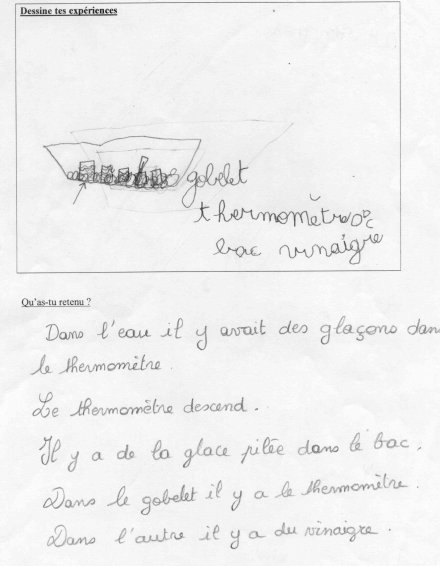 Dessine tes expériences
gobelet
thermomètre 0°C
bac vinaigre
Qu'as-tu retenu ?
Dans l'eau il y avait des glaçons dans
le thermomètre.
Le thermomètre descend.
Il y a de la glace pilée dans le bac.
Dans le gobelet il y a le thermomètre.
Dans l'autre il y a du vinaigre.